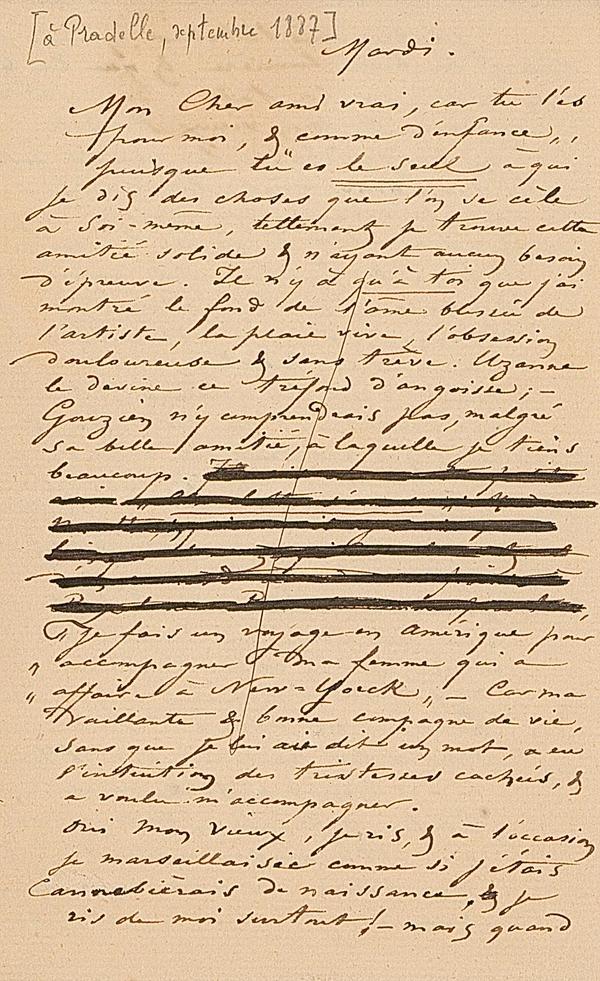 [à Pradelle, septembre 1887]
Mardi.
Mon Cher ami vrai, car tu l'es
pour moi, & comme d'enfance,,
puisque tu" es le seul à qui
je dis des choses que l'on se cèle
à Soi-même, tellement je trouve cette
amitié solide & n'ayant aucun besoin
d'épreuve. Il n'y a qu'à toi que j'ai
montré le fond de l'âme blessée de
l'artiste, la plaie vive, l'obsession
douloureuse & sans trève. Uzanne
le devine ce tréfond d'angoisse; -
Gouzien n'y comprendrais pas, malgré
sa belle amitié, à laquelle je tiens
beaucoup.
"Je fais un voyage en Amérique pour
" accompagner ma femme qui a
" affaire à New=Yorck", - Car ma
vaillante & bonne compagne de vie,
sans que je lui aie dit un mot, a eu
l'intuition des tristesses cachées, &
a voulu m'accompagner.
Oui mon vieux, je ris, & à l'occasion
je marseillaisie comme si j'étais
Cannebièrais de naissance, & je
ris de moi surtout! - mais quand